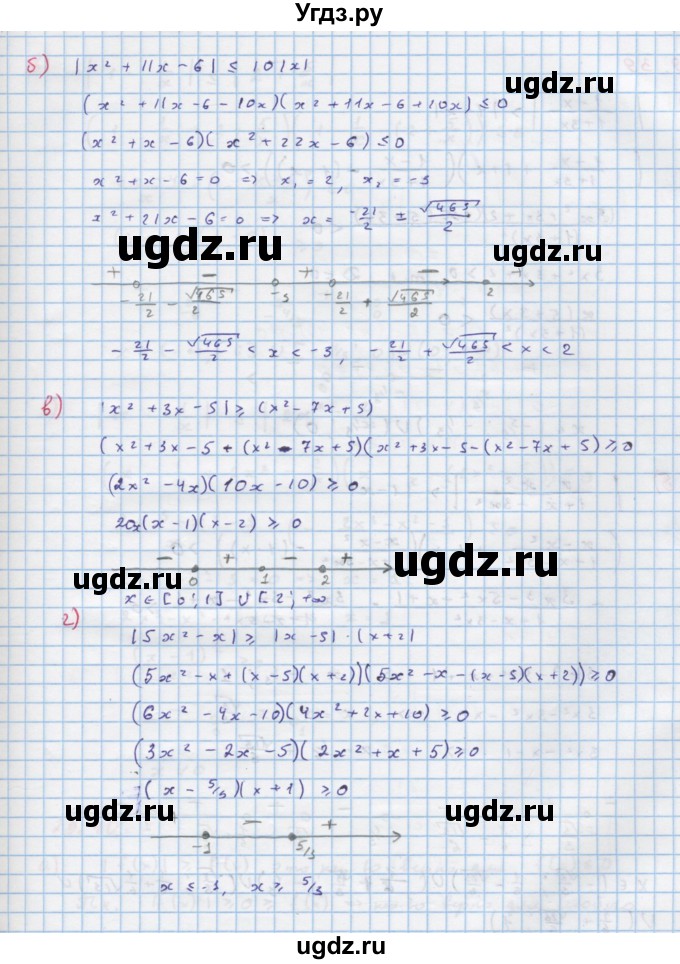 Угдз.ру
б) |x² + 11x - 6| ≤ 10|x|
(x² + 11x - 6 - 10x)(x² + 11x - 6 + 10x) ≤ 0
(x² + x - 6)(x² + 22x - 6) ≤ 0
x² + x - 6 = 0 => x₁ = 2, x₂ = -3
x² + 21x - 6 = 0 => x = -21/2 ± √465/2
ugdz.ru ugdz.ru
+ - + - +
-21/2 - √465/2 -3 -21/2 + √465/2 2
-21/2 - √465/2 < x < -3, -21/2 + √465/2 < x < 2
в) |x² + 3x - 5| ≥ (x² - 7x + 5)
(x² + 3x - 5 + (x² - 7x + 5)(x² + 3x - 5 - (x² - 7x + 5) ≥ 0
(2x² - 4x)(10x - 10) ≥ 0
20x(x - 1)(x - 2) ≥ 0
- + - +
0 1 2
ugdz.ru ugdz.ru
x ∈ [0; 1] ∪ [2; +∞
г)
|5x² - x| ≥ |x - 5| · (x + 2|
(5x² - x + (x - 5)(x + 2))(5x² - x - (x - 5)(x + 2)) ≥ 0
(6x² - 4x - 10)(4x² + 2x + 10) ≥ 0
(3x² - 2x - 5)(2x² + x + 5) ≥ 0
(x - 5/3)(x + 1) ≥ 0
ugdz.ru ugdz.ru
- +
-1 5/3
x ≤ -1, x ≥ 5/3
ugdz.ru